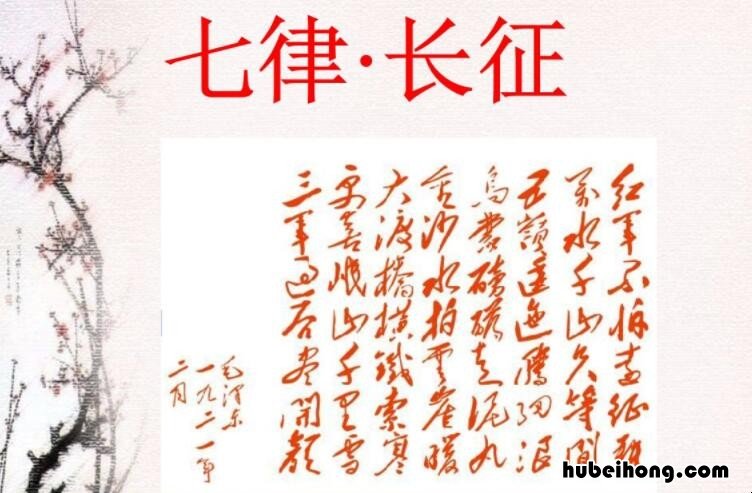 七律·长征
红军不怕远征難
萬水千山只等閒
五嶺逶迤腾细浪
烏蒙磅礴走泥丸
金沙水拍雲崖暖
大渡橋横鐵索寒
更喜岷山千里雪
三軍过后尽開顏
毛澤东
一九一年
二月
hubeihong.com